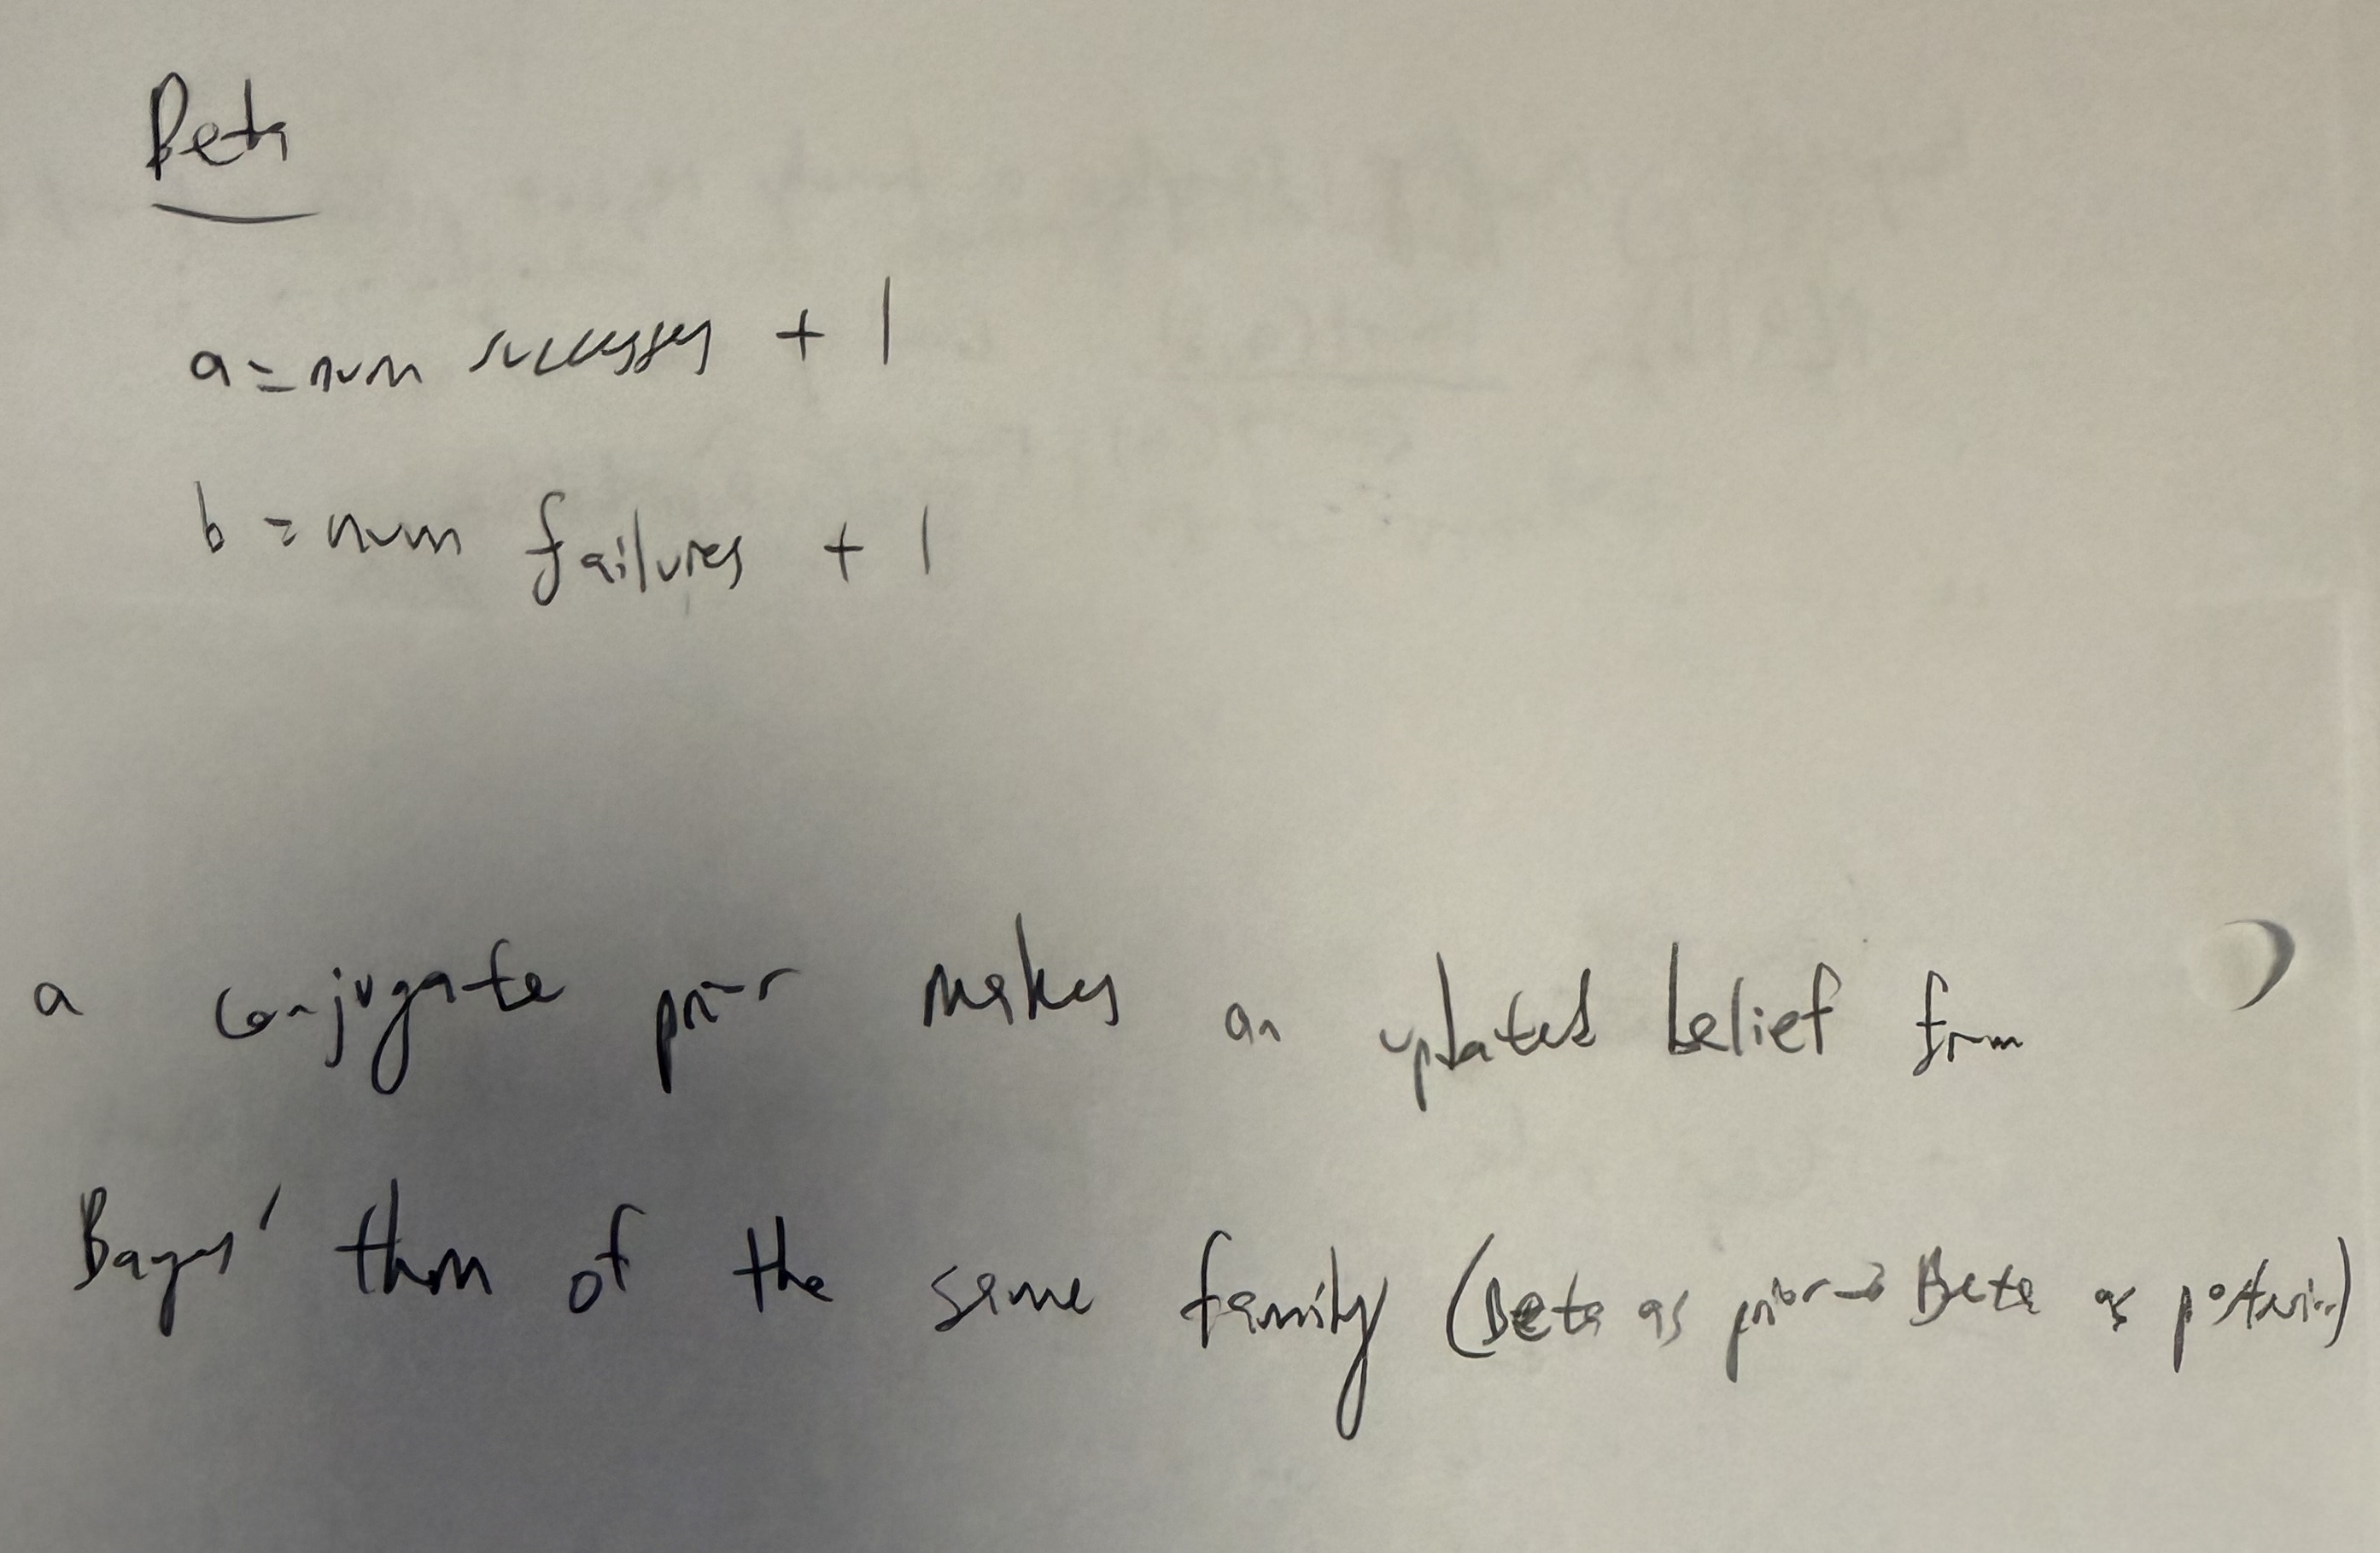 Beta
a = num successes + 1
b = num failures + 1
a conjugate prior makes an updated belief from
Bayes' thm of the same family (Beta as prior → Beta as posterior)